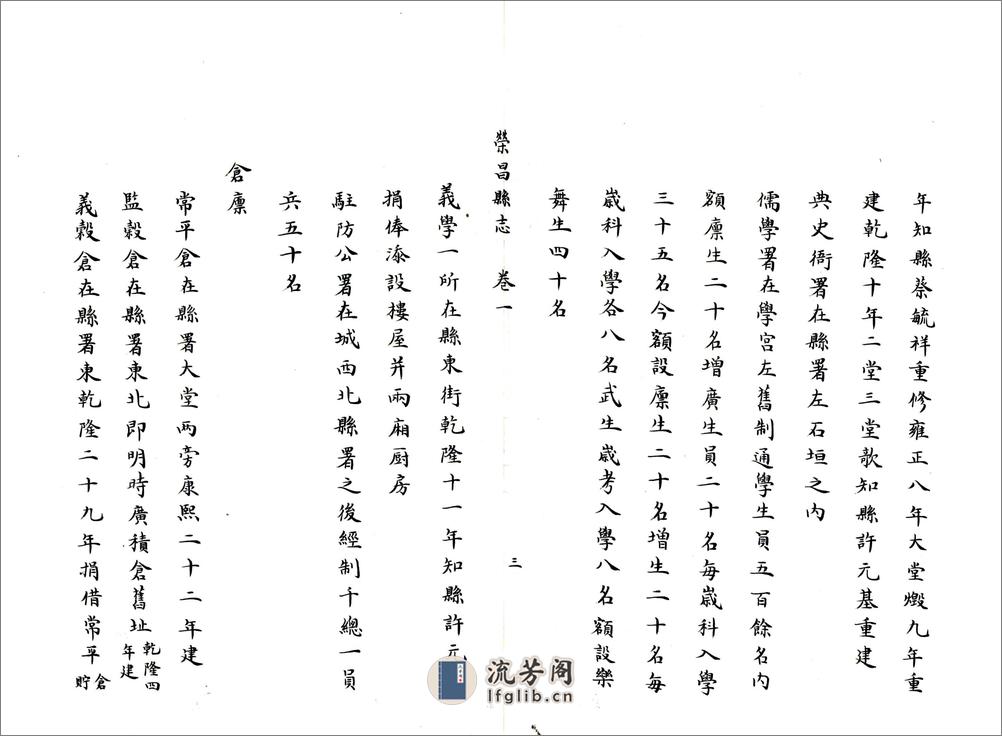 年知縣蔡毓祥重修雍正八年大堂燬九年重
建乾隆十年二堂三堂欹知縣許元基重建
典史衙署在縣署左石垣之內
儒學署在學宮左舊制通學生員五百餘名內
額廩生二十名增廣生員二十名每歲科入學
三十五名今額設廩生二十名增生二十名每
歲科入學各八名武生歲考入學八名額設樂
舞生四十名
榮昌縣志 卷一 三
義學一所在縣東街乾隆十一年知縣許元
捐俸添設樓屋并兩廂厨房
駐防公署在城西北縣署之後經制千總一員
兵五十名
倉廩
常平倉在縣署大堂兩旁康熙二十二年建
監穀倉在縣署東北即明時廣積倉舊址乾隆四年建
義穀倉在縣署東乾隆二十九年捐借常平倉貯
流芳阁
lfglib.cn